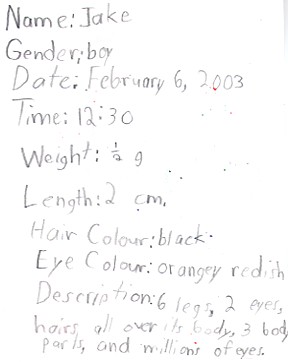 Name: Jake
Gender: boy
Date: February 6, 2003
Time: 12:30
Weight: ½ g
Length: 2 cm.
Hair Colour: black.
Eye Colour: orangey redish
Description: 6 legs, 2 eyes,
hairs all over its body, 3 body
parts, and millions of eyes.